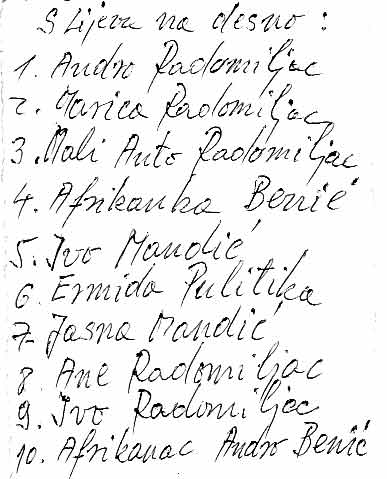 S lijeva na desno :
1. Andro Radomiljac
2. Marica Radomiljac
3. Mali Anto Radomiljac
4. Afrikanka Benić
5. Ivo Mandić
6. Ermida Pulitika
7. Jasna Mandić
8. Ane Radomiljac
9. Ivo Radomiljac
10. Afrikanac Andro Benić